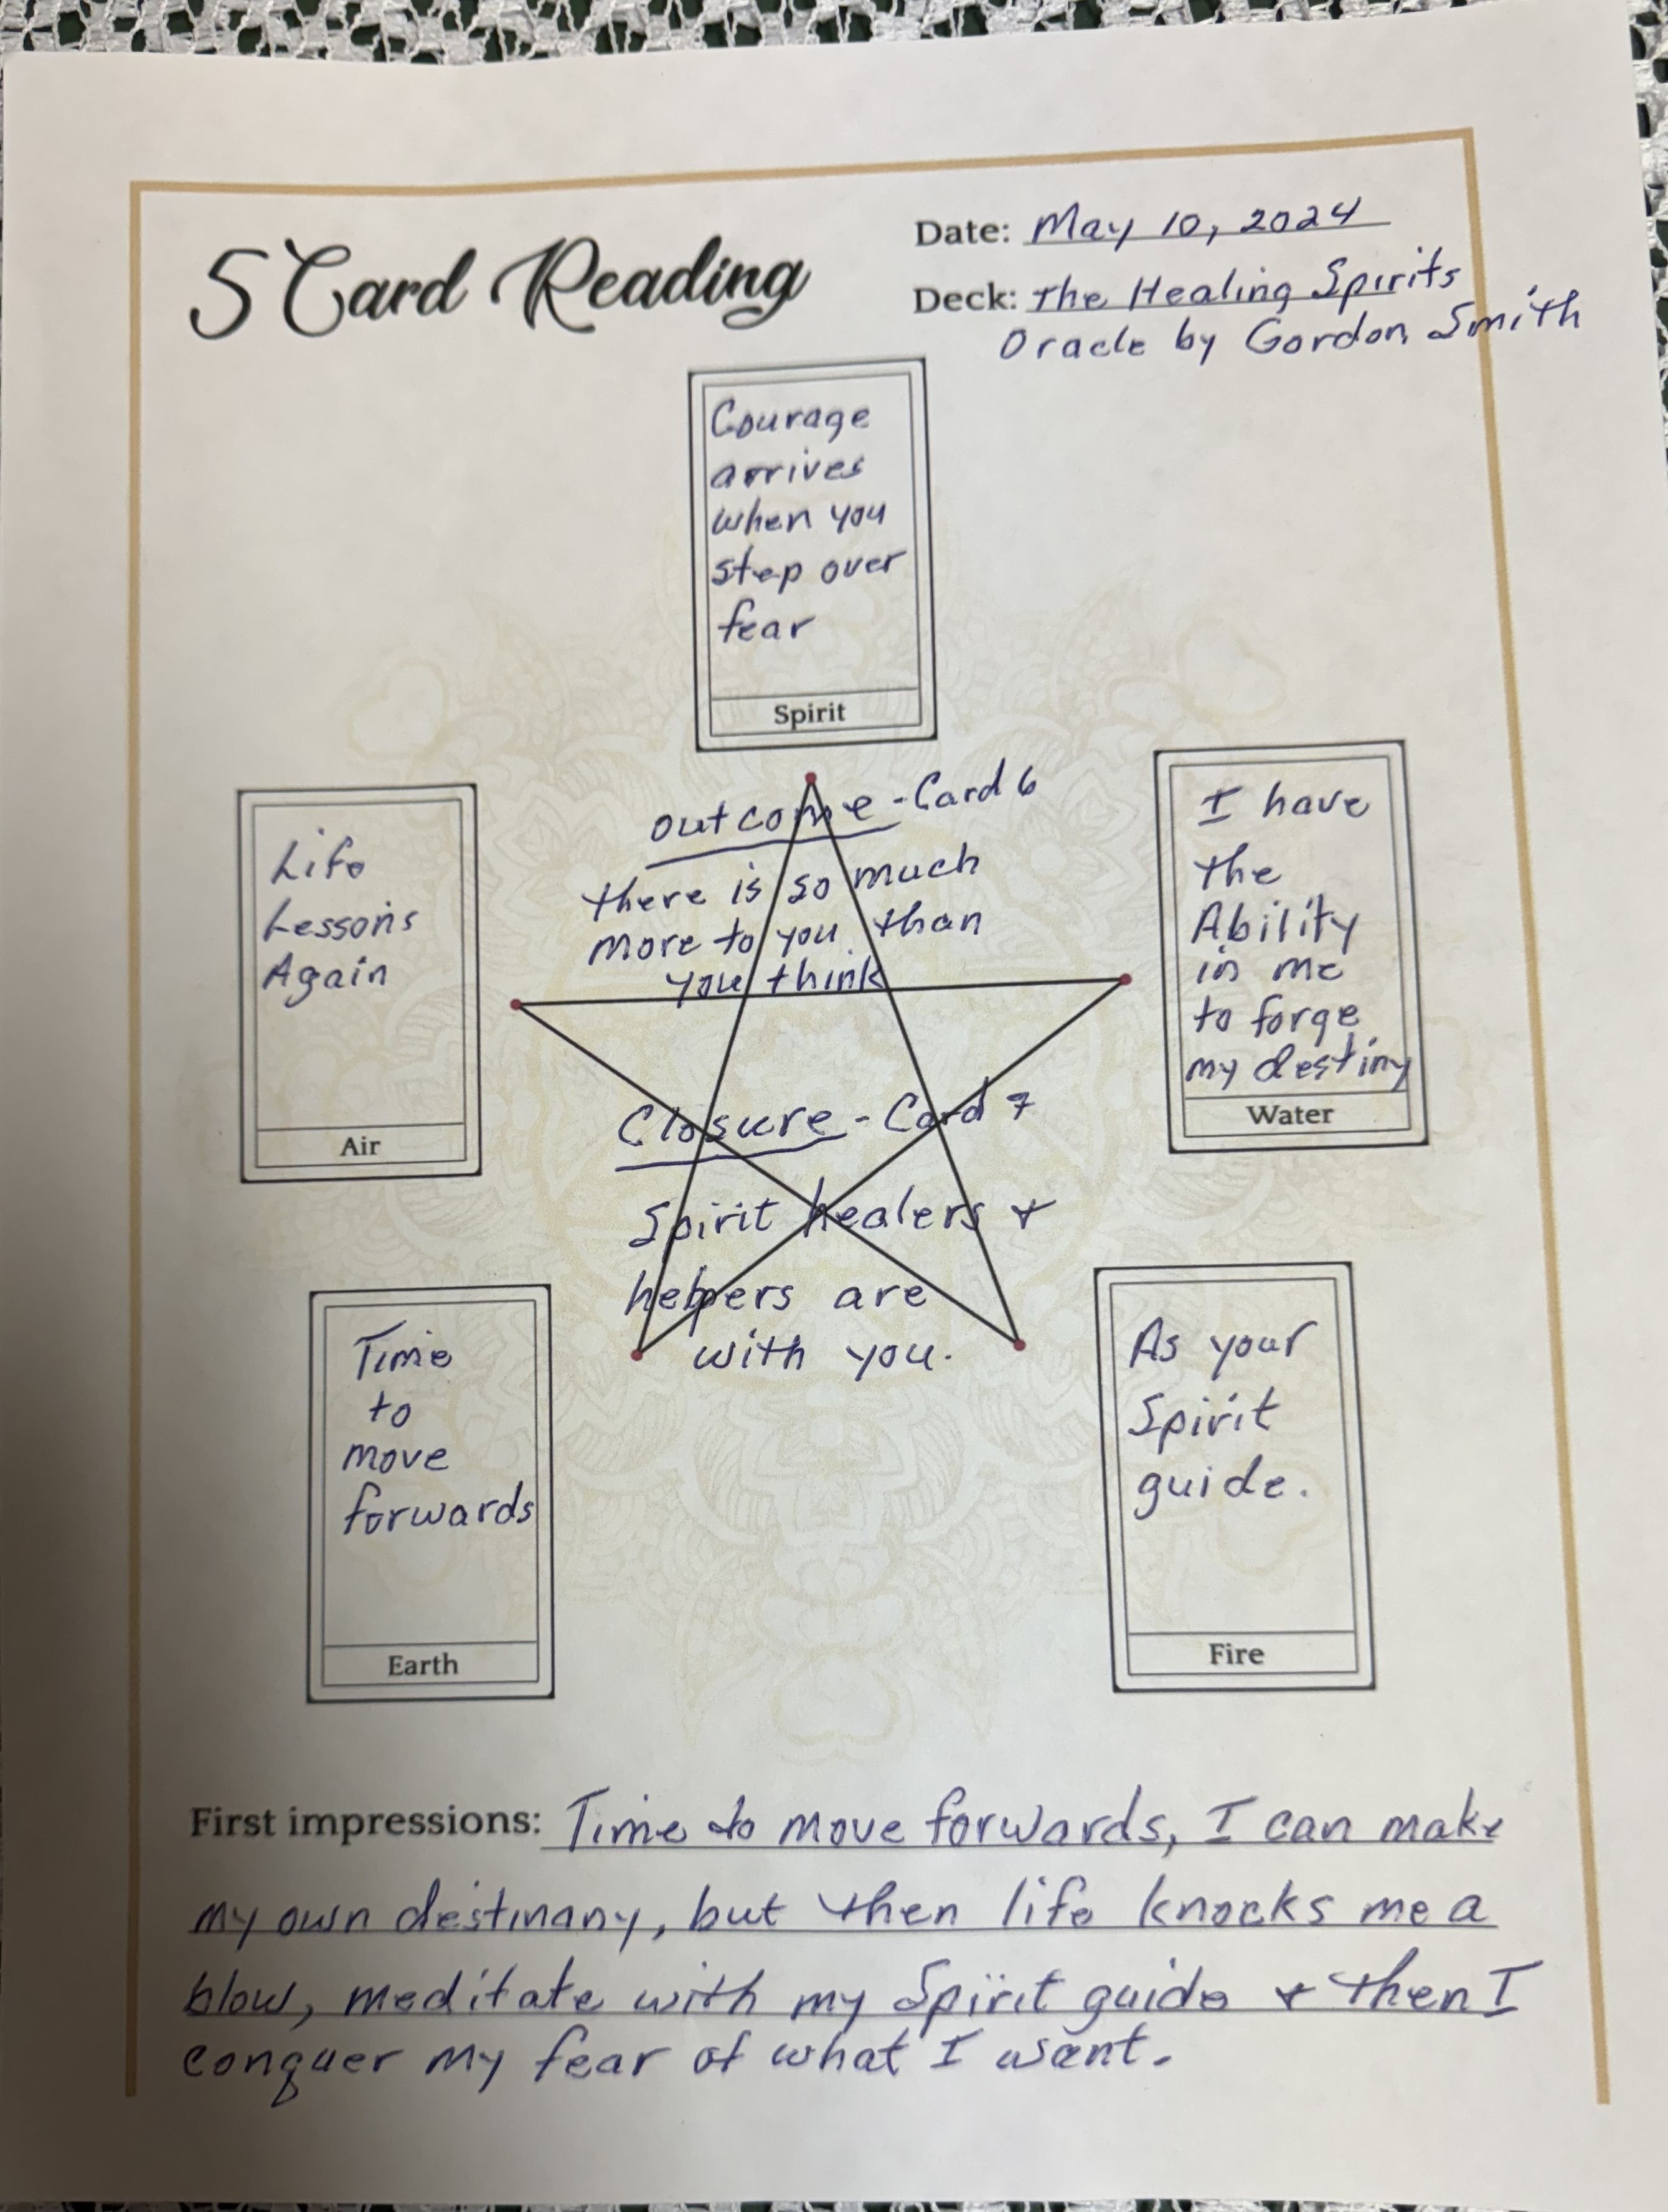 5 Card Reading
Date: May 10, 2024
Deck: The Healing Spirits
Oracle by Gordon Smith
Courage
arrives
when you
step over
fear
Spirit
Life
Lessons
Again
Air
outcome - Card 6
there is so much
more to you than
you think
I have
the
Ability
in me
to forge
my destiny
Water
Closure - Card 7
Spirit healers +
helpers are
with you.
Time
to
move
forwards
Earth
As your
Spirit
guide.
Fire
First impressions: Time to move forwards, I can make
my own destinany, but then life knocks me a
blow, meditate with my Spirit guide + then I
conquer my fear of what I want.